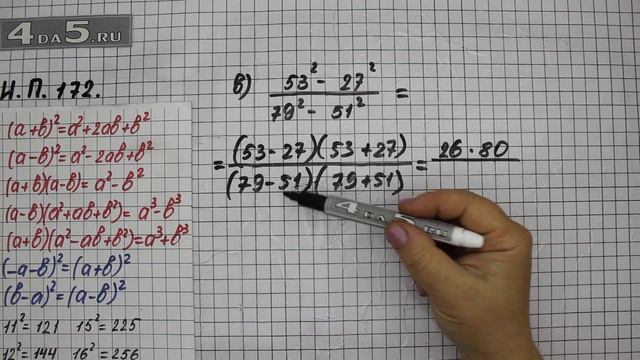 4DA5.RU
Н.П. 172.
(a+b)²=a²+2ab+b²
(a-b)²=a²-2ab+b²
(a+b)(a-b)=a²-b²
(a-b)(a²+ab+b²)=a³-b³
(a+b)(a²-ab+b²)=a³+b³
(-a-b)²=(a+b)²
(b-a)²=(a-b)²
11²=121 15²=225
12²=144 16²=256
в) 53²- 27² / 79²- 51² =
= (53-27)(53+27) / (79-51)(79+51) = 26·80
4DA5.RU